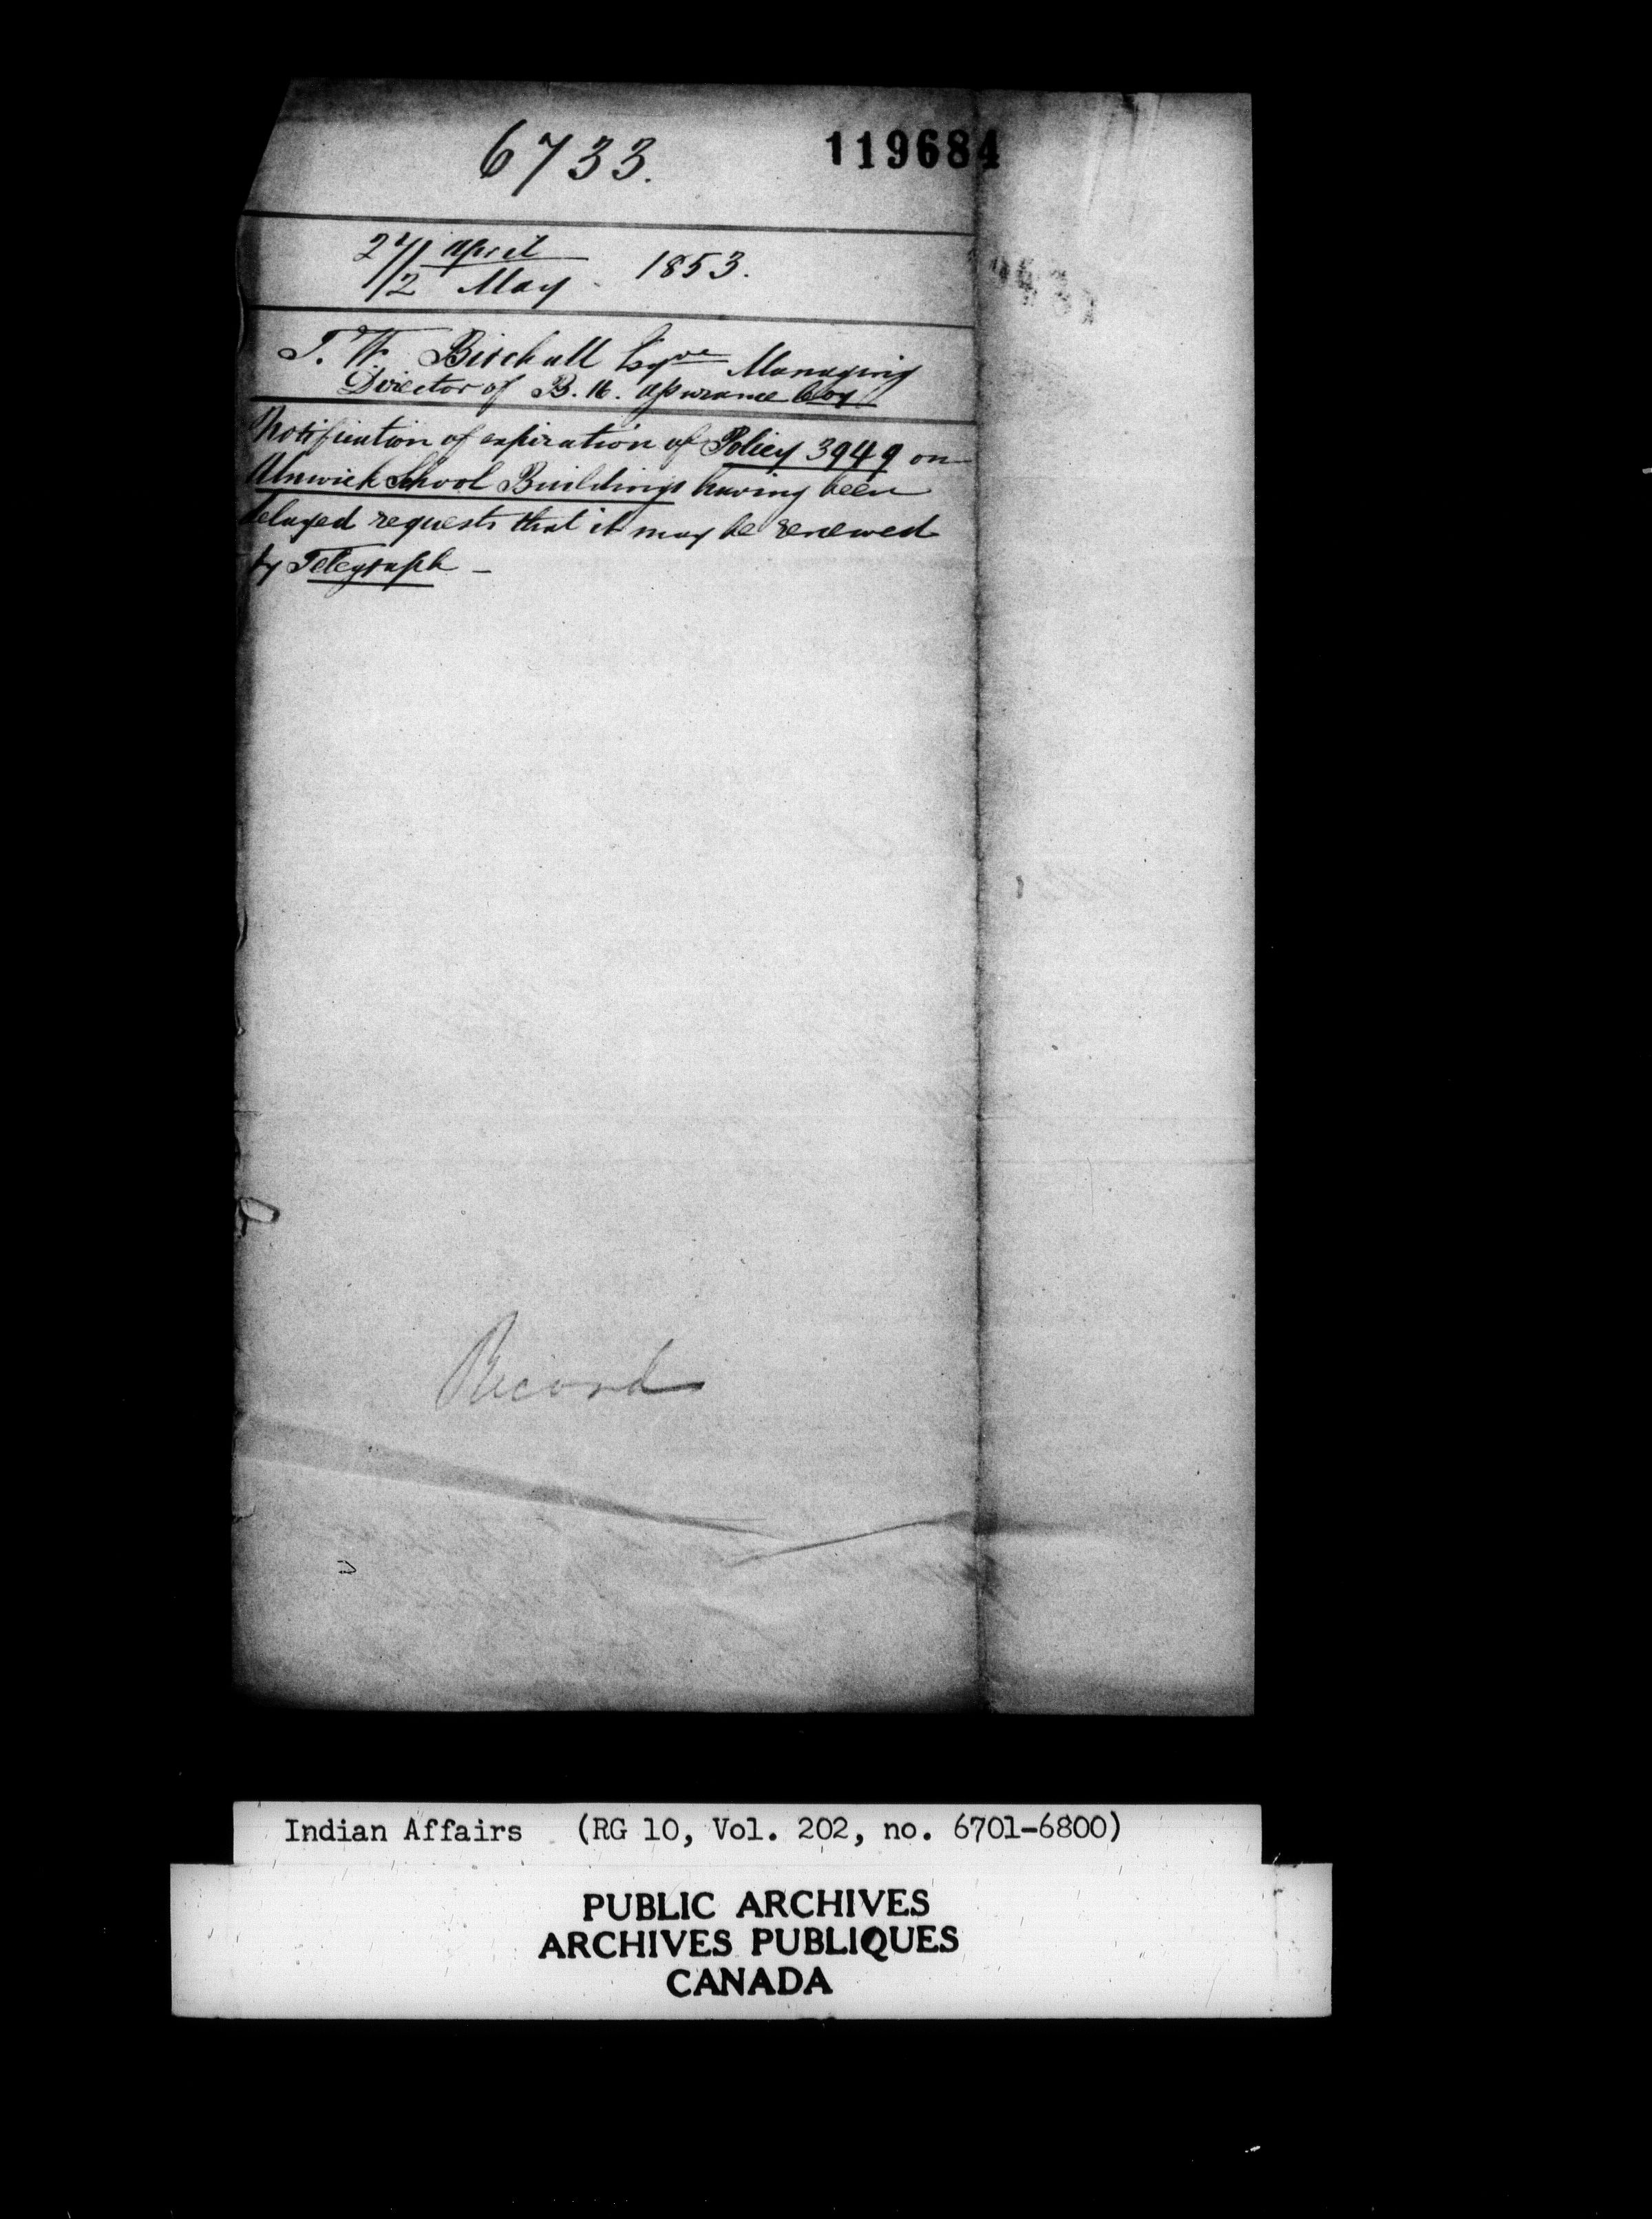 6733.
119684
27 April
2 May 1853.
T. W. Birchall Esqre Managing
Director of B. A. Assurance Coy
Notification of expiration of Policy 3949 on
Alnwick School Buildings having been
delayed requests that it may be renewed
by Telegraph –
Record
Indian Affairs (RG 10, Vol. 202, no. 6701-6800)
PUBLIC ARCHIVES
ARCHIVES PUBLIQUES
CANADA